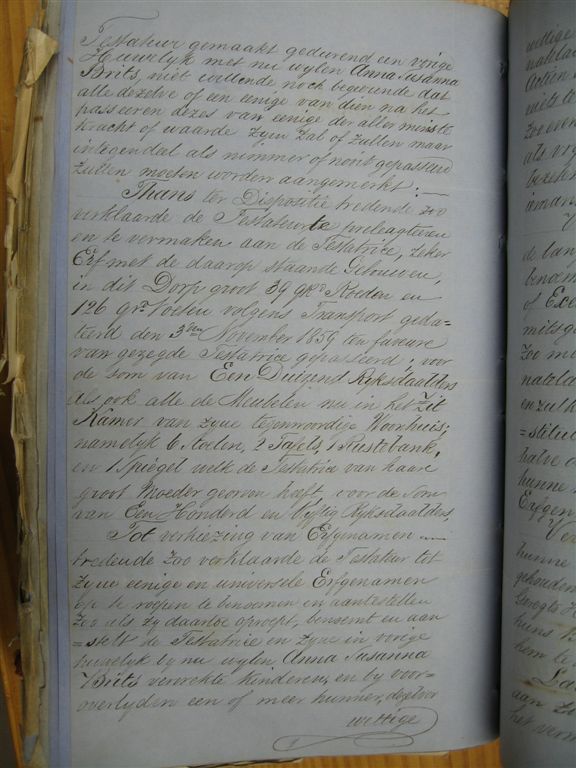 Testateur gemaakt gedurend een vorige
Huwelyk met nu wylen Anna Susanna
Brits, niet willende noch begeerende dat
alle dezelve of een eenige van dien na het
passeeren dezes van eenige der allerminste
kracht of waarde zyn zal of zullen maar
integendeel als nimmer of nooit gepasseerd
zullen moeten worden aangemerkt:—
Thans ter Dispositie tredende zoo
verklaarde de Testateur te prelegateeren
en te vermaken aan de Testatrice, zeker
Erf met de daarop staande Gebouwen,
in dit Dorp groot 39 Roeden en
126 Voeten volgens Transport geda=
teerd den 3den November 1859 ten faveure
van gezegde Testatrice gepasseerd; voor
de som van Een Duizend Ryksdaalders
Als ook alle de Meubelen nu in het Zit
Kamer van zyne tegenwoordige Woonhuis;
namelyk 6 Stoelen, 2 Tafels, 1 Rustebank,
en 1 Spiegel welk de Testatrice van haare
groot Moeder georven heeft, voor de som
van Een Honderd en vyftig Ryksdaalders,
Tot verkiezing van Erfgenamen —
tredende zoo verklaarde de Testateur tot
zyne eenige en universele Erfgenamen
op te roepen te benoemen en aantestellen
Zoo als zy daartoe oproept, benoemt en aan
=stelt de Testatrice en zyne in vorige
huwelyk by nu wylen, Anna Susanna
Brits verwekte kinderen, en by voor=
overlyden een of meer hunner, deszelver
wettige